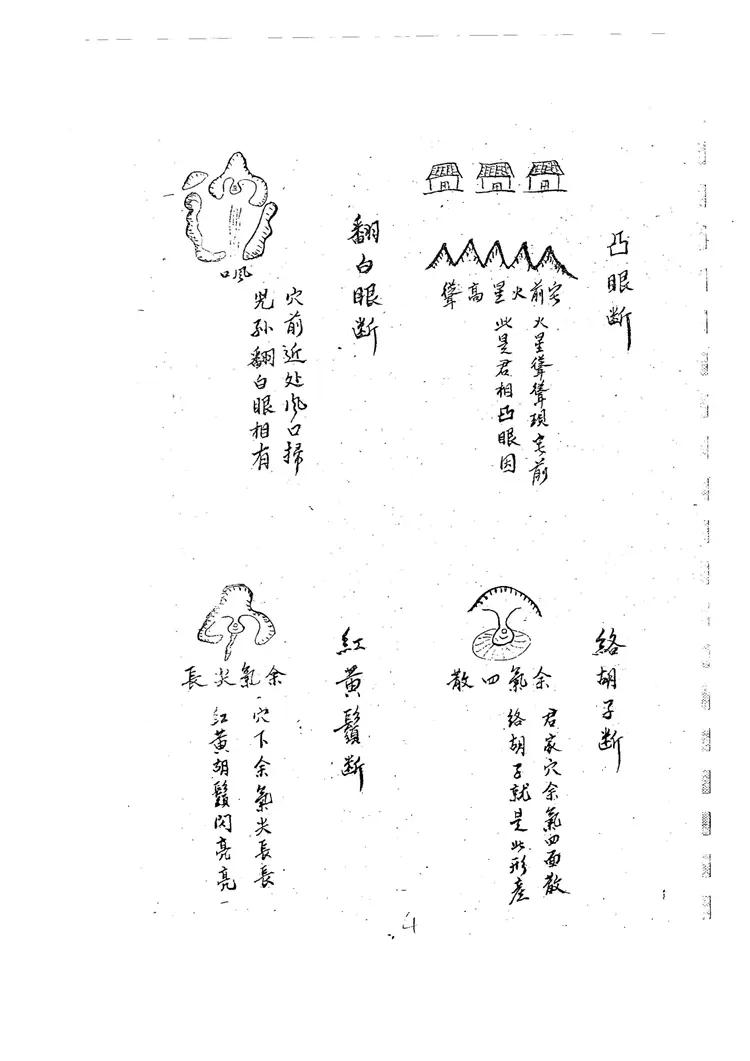 凸眼断
宅前火星高聳
火星聳聳現宅前
此是君相凸眼因
翻白眼断
風口
穴前近处风口掃
兒孙翻白眼相有
絡胡子断
余氣四散
君家穴余氣四面散
络胡子就是此形產
紅黄鬚断
余氣尖長
穴下余氣尖長長
红黄胡鬚闪亮亮
4